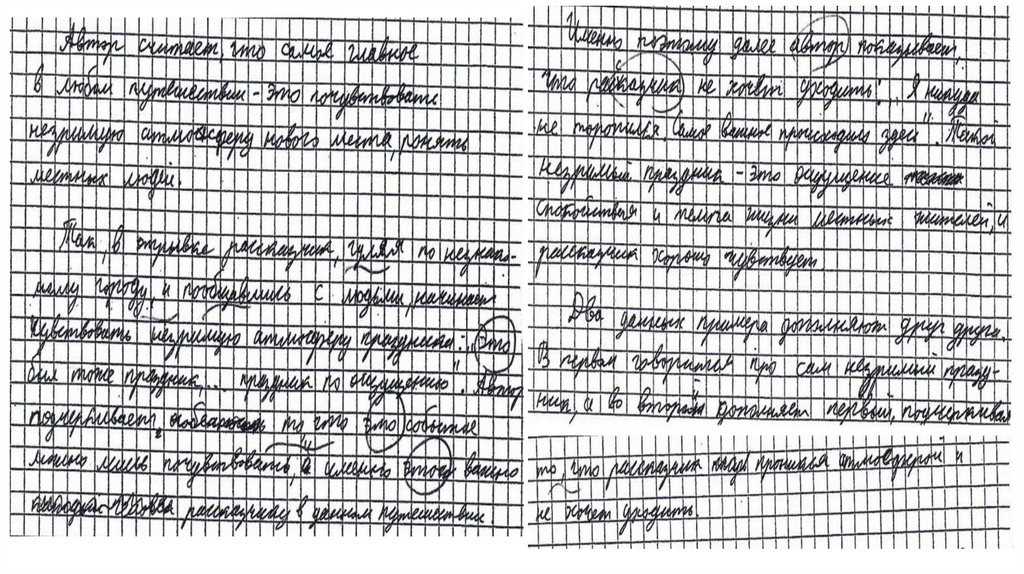 Автор считает, что самое главное
в любом путешествии – это почувствовать
незримую атмосферу нового места, понять
местных людей.
Так, в отрывке рассказчик, гуляя по незнако-
мому городу, и пообщавшись с людьми, начинает
чувствовать незримую атмосферу праздника: „Это
был тоже праздник... праздник по ощущению". Автор
подчёркивает, то что это событие
можно лишь почувствовать, и именно этого важно
рассказчику в данном путешествии.
Именно поэтому далее автор показывает,
что рассказчик не хочет уходить: „Я никуда
не торопился самое важное происходило здесь". Такой
незримый праздник – это ощущение
спокойствия и темпа жизни местных жителей, и
рассказчик хорошо чувствует
Два данных примера дополняют друг друга.
В первом говорится про сам незримый празд-
ник, а во второй дополняет первый, подчёркивая
то, что рассказчик проникся атмосферой и
не хочет уходить.